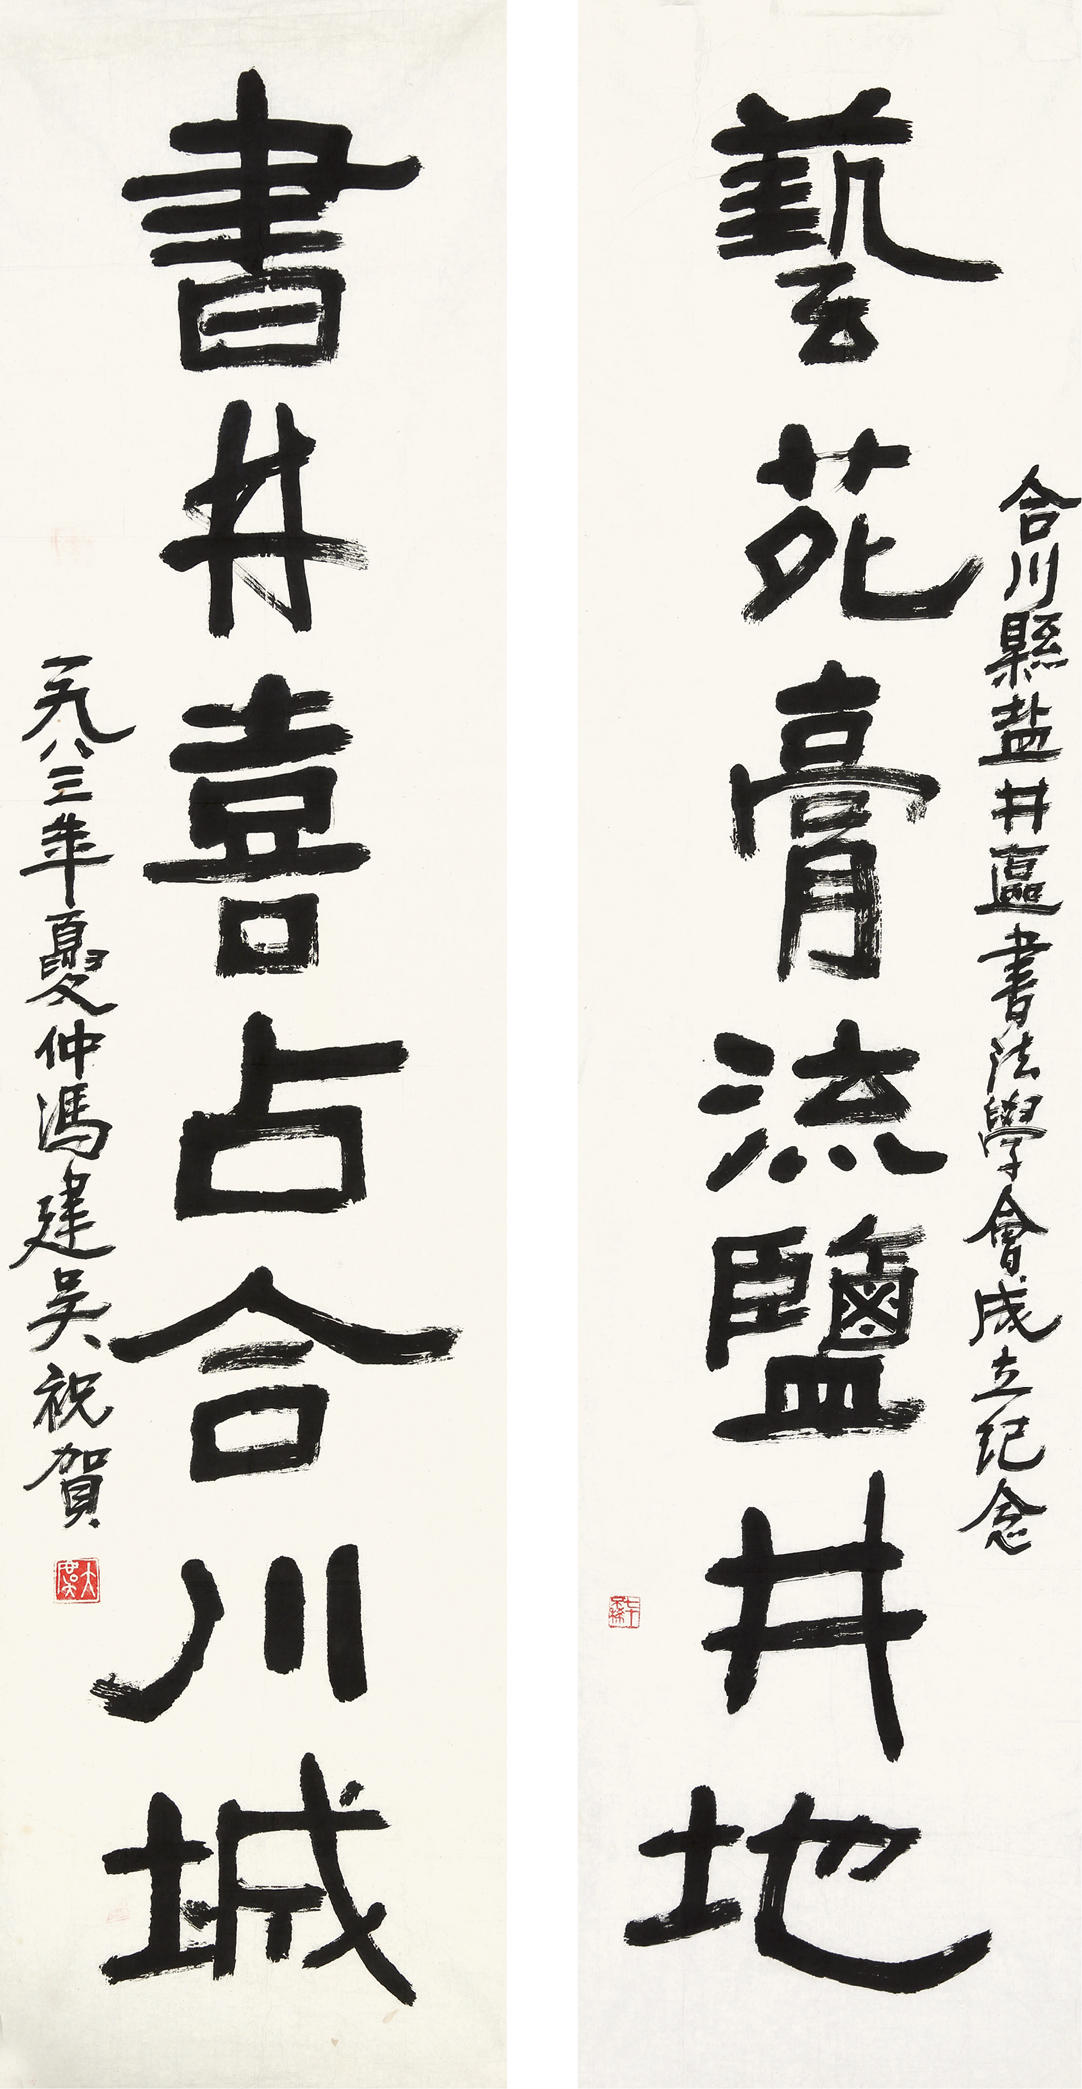 藝苑膏流鹽井地
合川縣盐井區書法學會成立纪念
七十不稀
書喜占合川城
一九八三年夏仲馮建吴祝賀
大虞